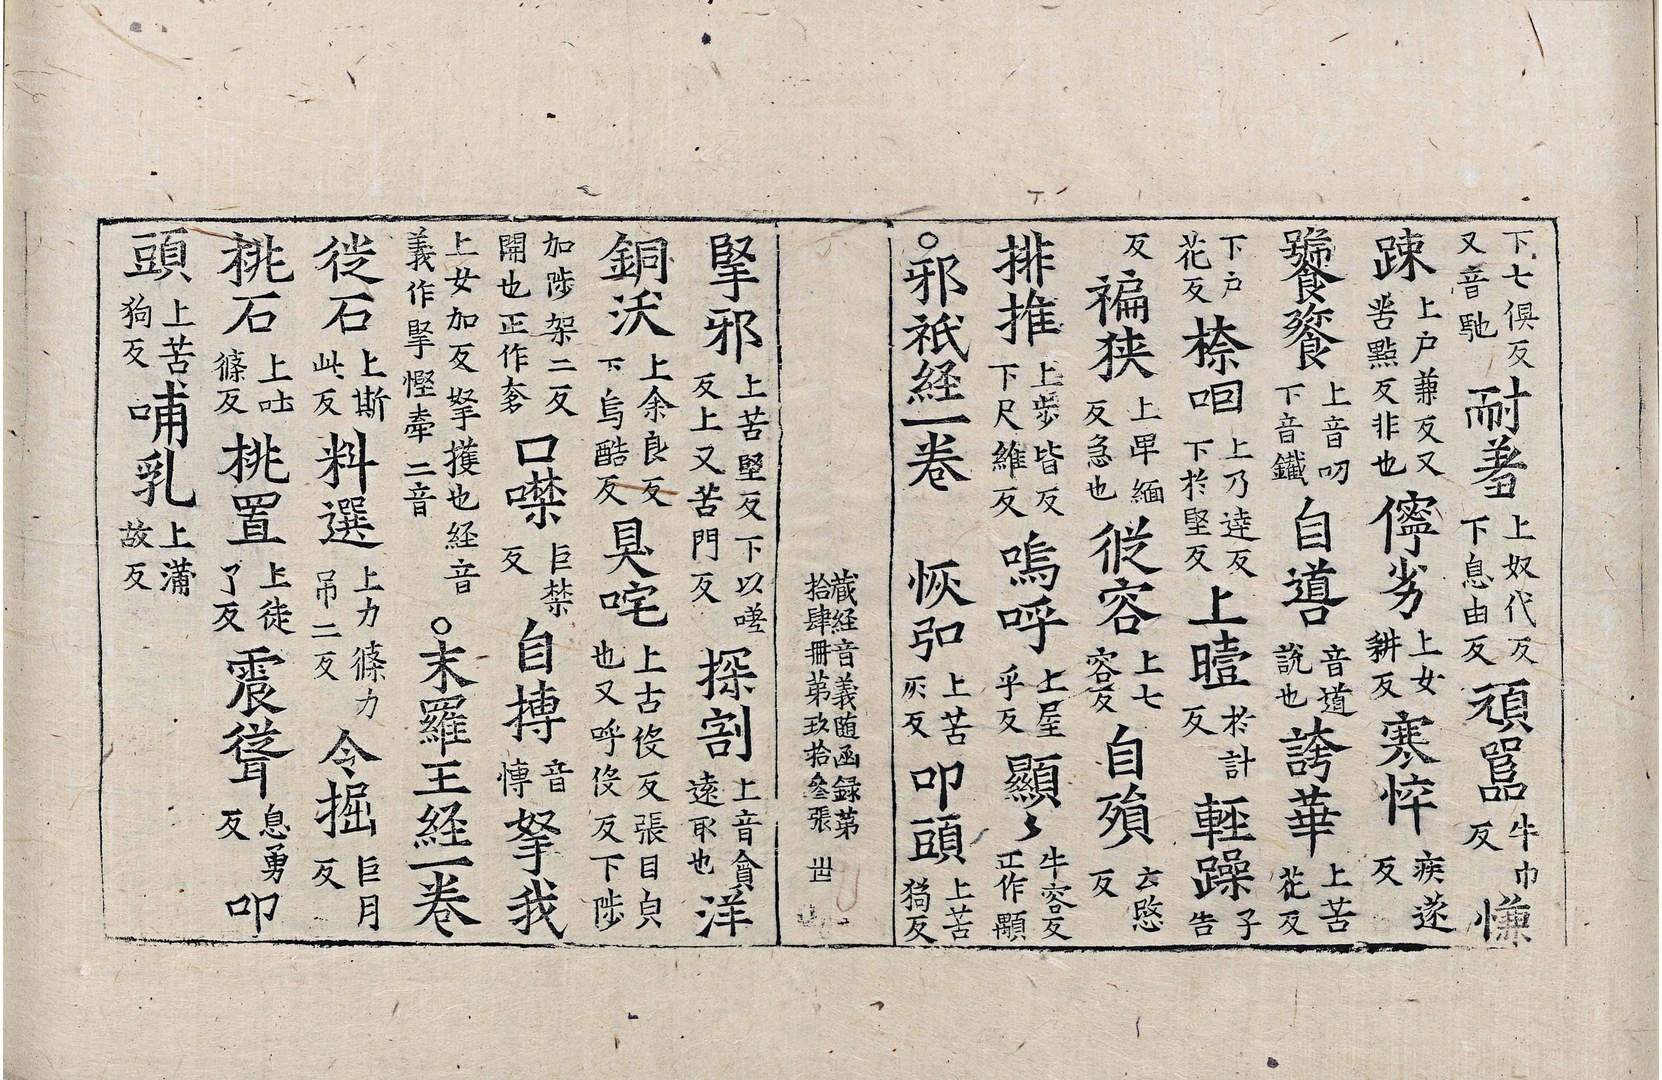 下七俱反又音馳耐羞上奴代反下息由反頑嚚牛巾反慊
踈上戶兼反又苦點反非也儜劣上女耕反寒悴疾遂反
饕餮上音叨下音鐵自導音道説也誇華上苦花反
下戶花反㮈㕸上乃逹反下於堅反上曀於計反軽躁子告
反褊狭上卑緬反急也從容上七容反自殞云愍反
排推上步皆反下尺維反嗚呼上屋乎反顯〻牛容反正作顒
○邪祇経一卷 恢弘上苦灰反叩頭上苦狗反
藏経音義随函録第
拾肆册第玖拾叄張 丗
掔邪上苦堅反下以嗟反上又苦門反探割上音貪遠取也洋
銅沃上余良反下烏酷反臭咤上古伇反張目皃也又呼伇反下陟
加陟架二反開也正作奓口噤巨禁反自摶音慱拏我
上女加反拏攫也経音義作掔慳牽二音○末羅王経一卷
徙石上斯此反料選上力篠力吊二反令掘巨月反
挑石上吐篠反挑置上徒了反震聳息勇反叩
頭上苦狗反哺乳上蒲故反